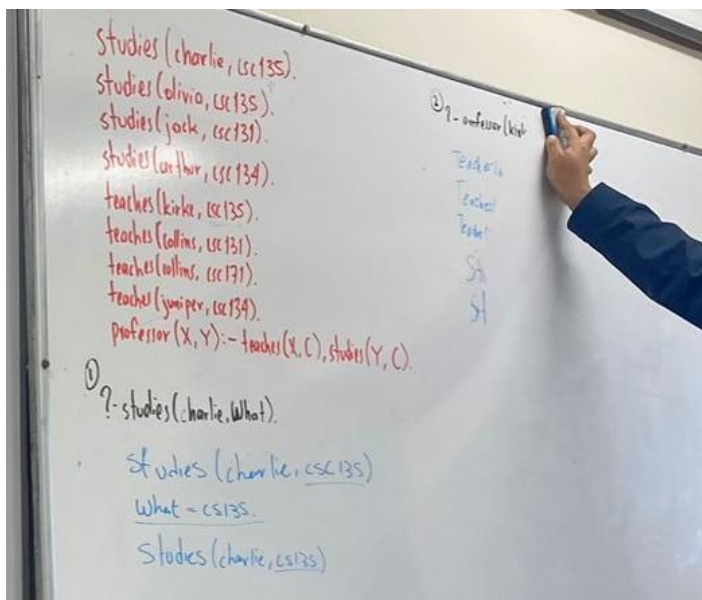 studies(charlie, csc135).
studies(olivia, csc135).
studies(jack, csc131).
studies(arthur, csc134).
teaches(kirke, csc135).
teaches(collins, csc131).
teaches(collins, csc171).
teaches(juniper, csc134).
professor(X, Y):- teaches(X, C), studies(Y, C).
①
?- studies(charlie, What).
studies(charlie, csc135)
What = cs135.
studies(charlie, cs135)
② ?- professor(kirk
Teache
Teaches
Teache
St
St